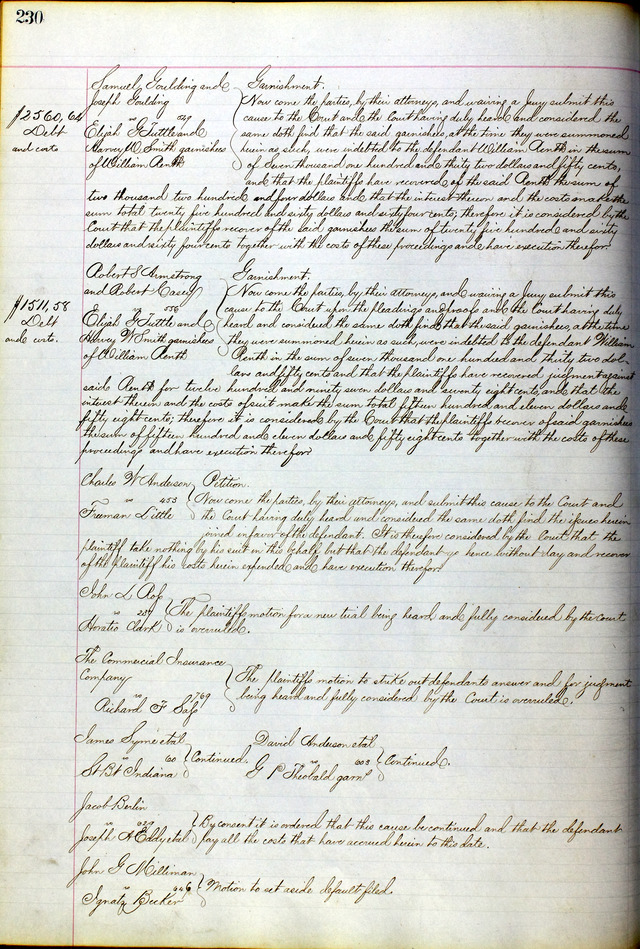 230
Samuel Goulding and
Joseph Goulding
vs
Elijah G Tuttle and
Harvey W. Smith garnishees
of William Renth
$2560,64
Debt
and costs
Garnishment.
Now come the parties, by their attorneys, and waiving a Jury submit this
cause to the Court and the Court having duly heard and considered the
same doth find that the said garnishees, at the time they were summoned
herein as such, were indebted to the defendant William Renth in the sum
of Seven thousand one hundred and thirty two dollars and fifty cents,
and that the plaintiffs have recovered of the said Renth the sum of
two thousand two hundred and four dollars and that the interest thereon and the costs make the
sum total twenty five hundred and sixty dollars and sixty four cents; therefore it is considered by the
Court that the plaintiffs recover of the said garnishees the sum of twenty five hundred and sixty
dollars and sixty four cents together with the costs of these proceedings and have execution therefor.
Robert S Armstrong
and Robert Casey
vs 556
Elijah G Tuttle and
Harvey W Smith garnishees
of William Renth
$1511,58
Debt
and costs.
Garnishment.
Now come the parties, by their attorneys, and waiving a Jury submit this
cause to the Court upon the pleadings and proofs and the Court having duly
heard and considered the same doth find that the said garnishees, at the time
they were summoned herein as such were indebted to the defendant William
Renth in the sum of seven thousand one hundred and thirty two dol-
lars and fifty cents and that the plaintiffs have recovered judgment against
said Renth for twelve hundred and ninety seven dollars and seventy eight cents, and that the
interest thereon and the costs of suit make the sum total fifteen hundred and eleven dollars and
fifty eight cents; therefore it is considered by the Court that the plaintiffs recover of said garnishees
the sum of fifteen hundred and eleven dollars and fifty eight cents together with the costs of these
proceedings and have execution therefor
Charles W Anderson
vs 453
Freeman Little
Petition.
Now come the parties, by their attorneys, and submit this cause to the Court and
the Court having duly heard and considered the same doth find the issues herein
joined in favor of the defendant. It is therefore considered by the Court that the
plaintiff take nothing by his suit in this behalf but that the defendant go hence without day and recover
of the plaintiff his costs herein expended and have execution therefor.
John L Ross
vs
Horatio Clark
The plaintiffs motion for a new trial being heard and fully considered by the Court
is overruled.
The Commercial Insurance
Company
vs 769
Richard F Sass
The plaintiffs motion to strike out defendants answer and for judgment
being heard and fully considered by the Court is overruled.
James Syme etal
vs 60
St Bt Indiana
Continued.
David Anderson etal
vs 603
G P Theobald garn
Continued.
Jacob Berlin
vs
Joseph A Eddy etal
By consent it is ordered that this cause be continued and that the defendant
pay all the costs that have accrued herein to this date.
John G Milliman
vs 446
Ignatz Becker
Motion to set aside default filed.